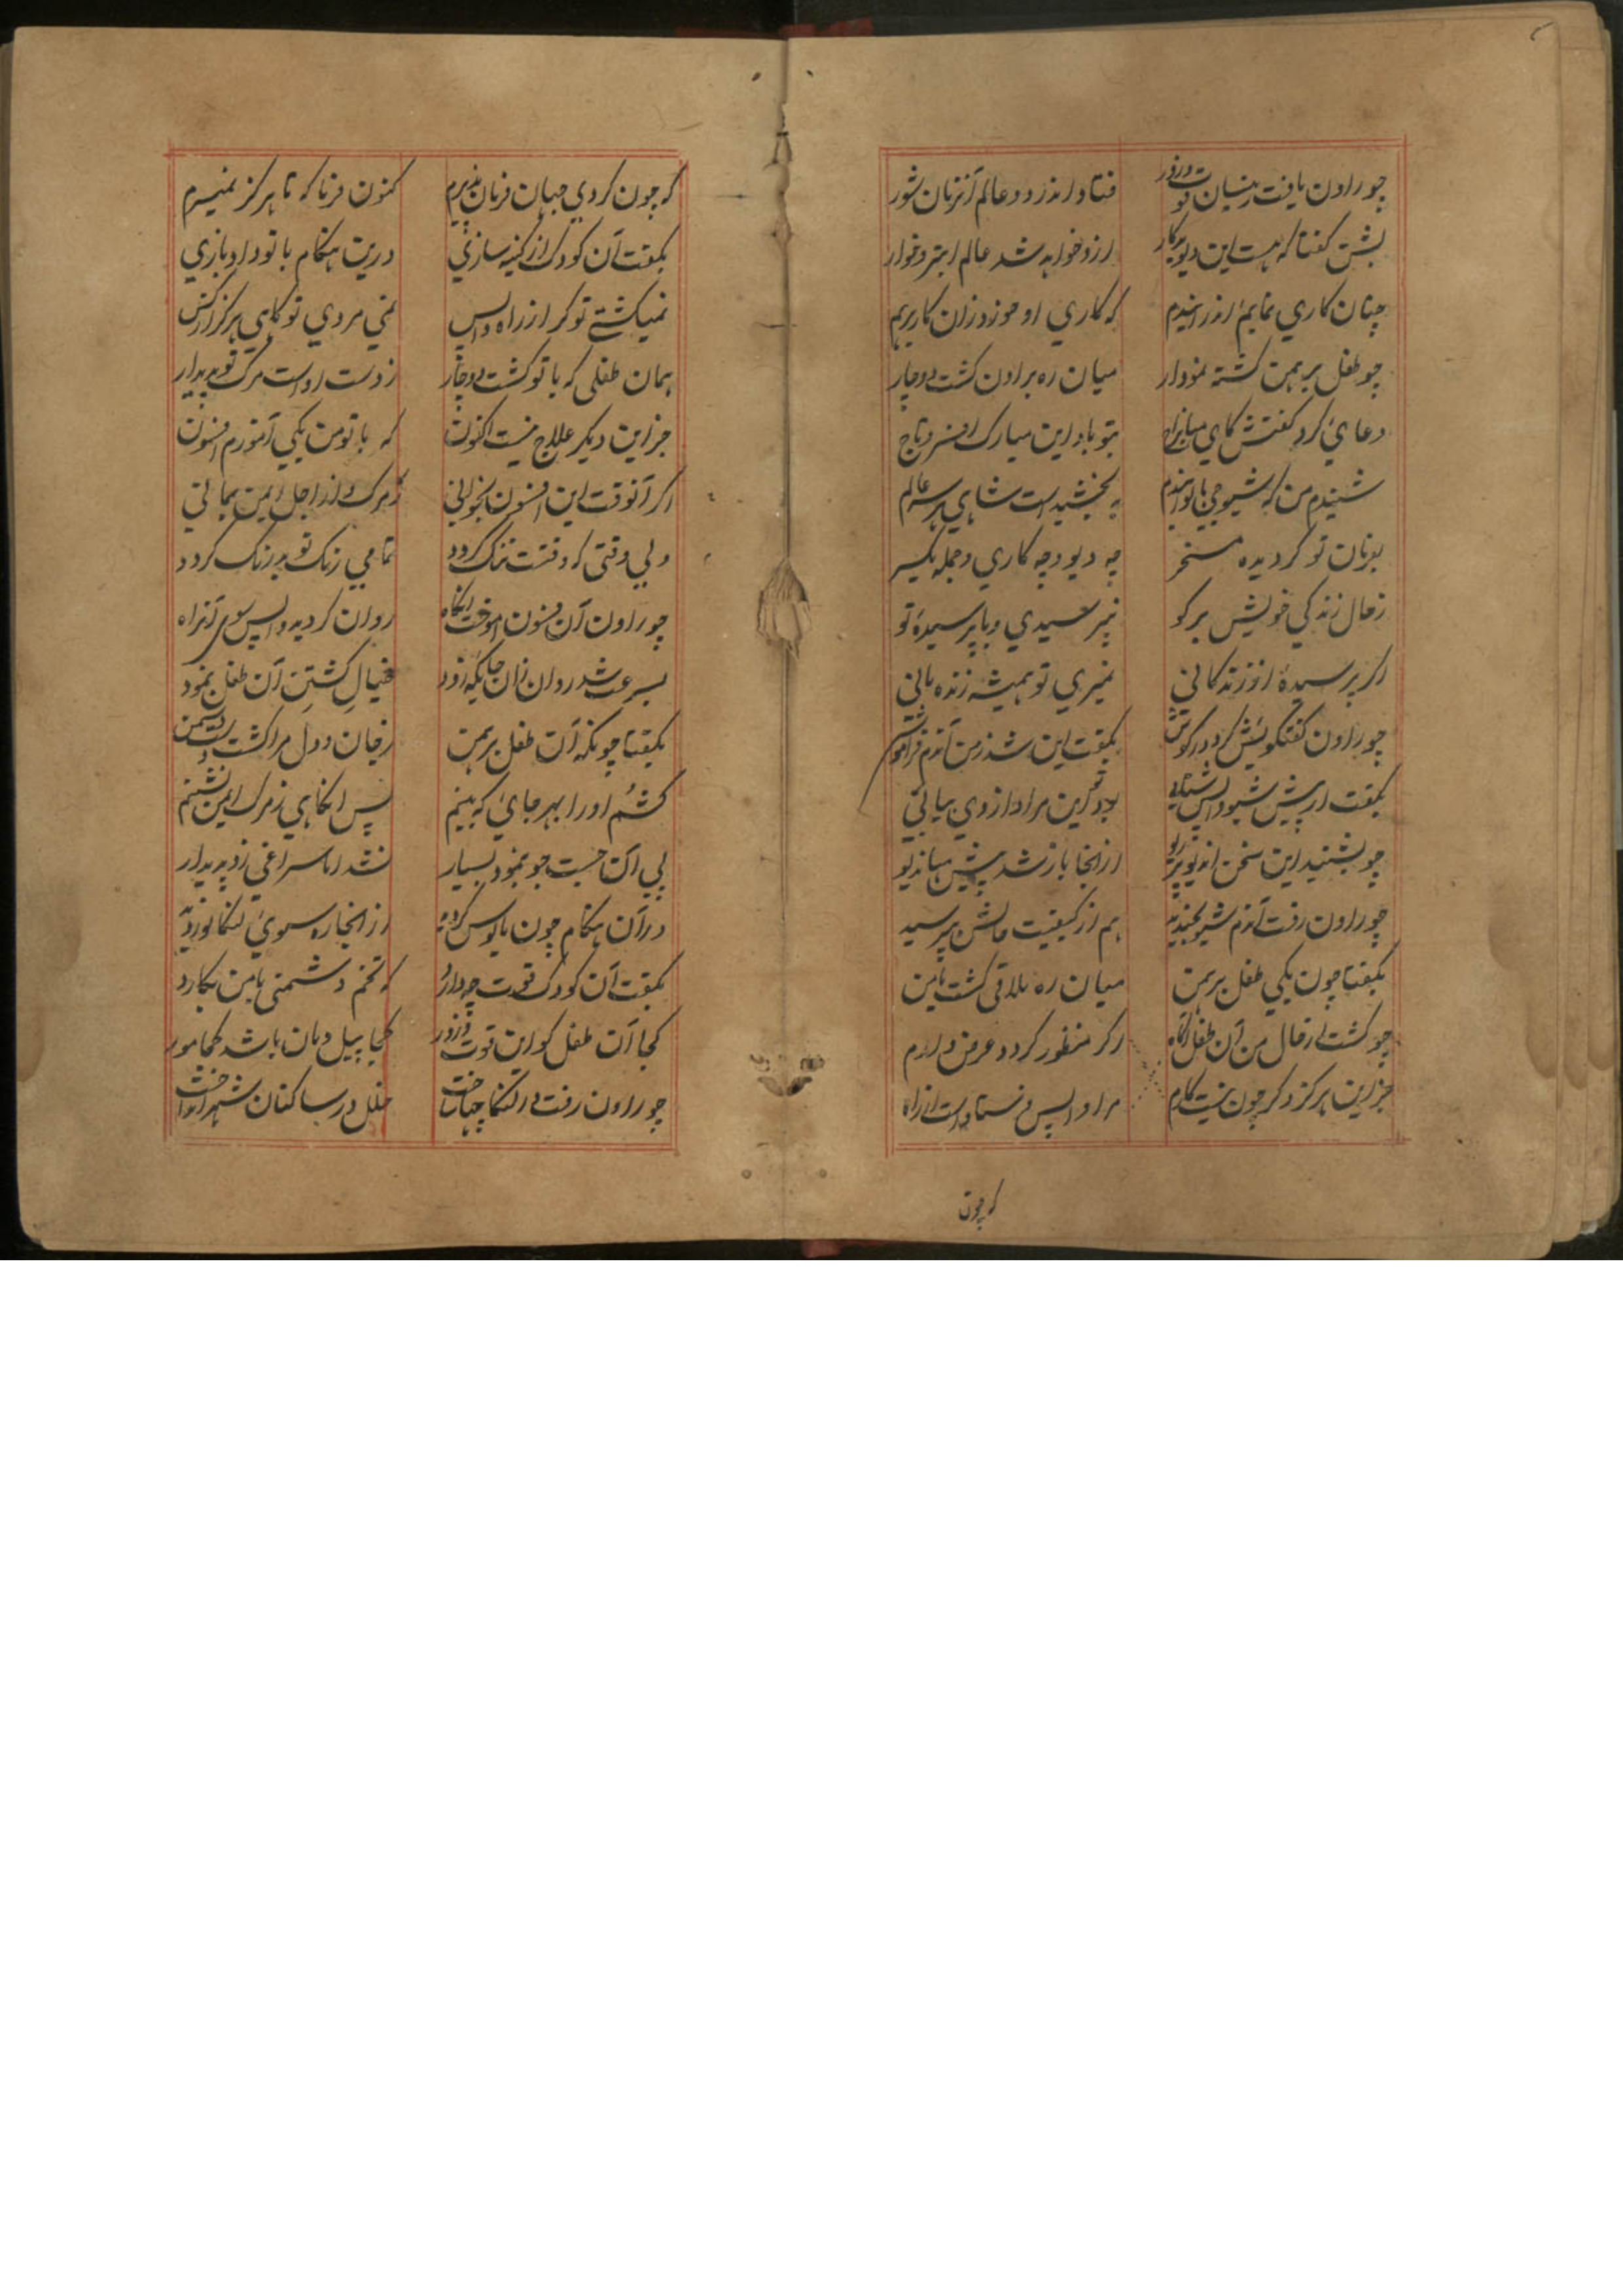 چو راون یافت زینسان قوت و زور فتاد اندر دو عالم آنزمان شور
بشن گفتا که هست این دیو بدکار ازو خواهد شد عالم ابتر و خوار
چنان کاری نمایم اندر اندم که کاری او
چو طفل برهمن گشته نمودار میان ره براون گشت دوچار
دعایٔ کرد گفتش کای بتو باد این مبارک افسر و تاج
شنیدم من که شیوجی با تو ایندم ببخشیداست شاهی سر عالم
بفرمان تو گردیده مسخر چه دیو و چه کاری و جمله یکسر
ز حال زندگی خویش برگو نپرسیدی و یا پرسیدهٔ تو
اگر پرسیدهٔ از زندگانی نمیری تو همیشه زنده مانی
چو راون گفتگویش کرد در گوش بگفت این شد ز من آندم فراموش
بگفت از پیش شیو واپس شتابی بود کاین مراد از وی بیابی
چو بشنید این سخن از آنجا باز شد پیش مهاندیو
چو راون رفت آندم شیو بخندید هم از کیفیت حالش بپرسید
بگفتا چون یکی طفل برهمن میان ره ملاقی گشت با من
چو گشت از حال من آن طفل آگاه مرا واپس فرستاد است از راه
جز این هرگز دگر چون نیست کارم اگر منظور گردد عرض دارم
که چون
که چون کردی جهان فرمان پذیرم کنون فرما که تا هرگز نمیرم
بگفت آن کودک از کینه سازی درین هنگام با تو داد بازی
نمیگشتی تو گر از راه واپس نمی مردی تو گاهی هرگز از کس
همان طفلی که با تو گشت دوچار ز دست اوست مرگ تو پدیدار
جز این دیگر علاج نیست اکنون که با تو من یکی آموزم افسون
اگر آنوقت این افسون بخوانی ز مرگ و از اجل ایمن بمانی
ولی وقتی که وقتت تنگ گردد تمامی رنگ تو بیرنگ گردد
چو راون آن فسون آموخت آنگاه روان گردید واپس سوی آنراه
بسرعت شد روان زان جایگه زود خیال کشتن آن طفل بنمود
بگفتا چونکه آن طفل برهمن ز جان و دل مرا گشت است دشمن
کشم او را بهر جایٔ که بینم پس آنگاهی ز مرگ ایمن نشینم
پی آن جست جو بنمود بسیار نشد اما سراغی زو پدیدار
در آن هنگام چون مایوس گردید از آنجا ره سوی لنکا نوردید
بگفت آن کودک قوت چه دارد که تخم دشمنی با من بکارد
کجا آن طفل کو این قوت و زور کجا پیل دمان باشد کجا مور
چو راون رفت در لنکا چنان خلل در ساکنان شهر انداخت